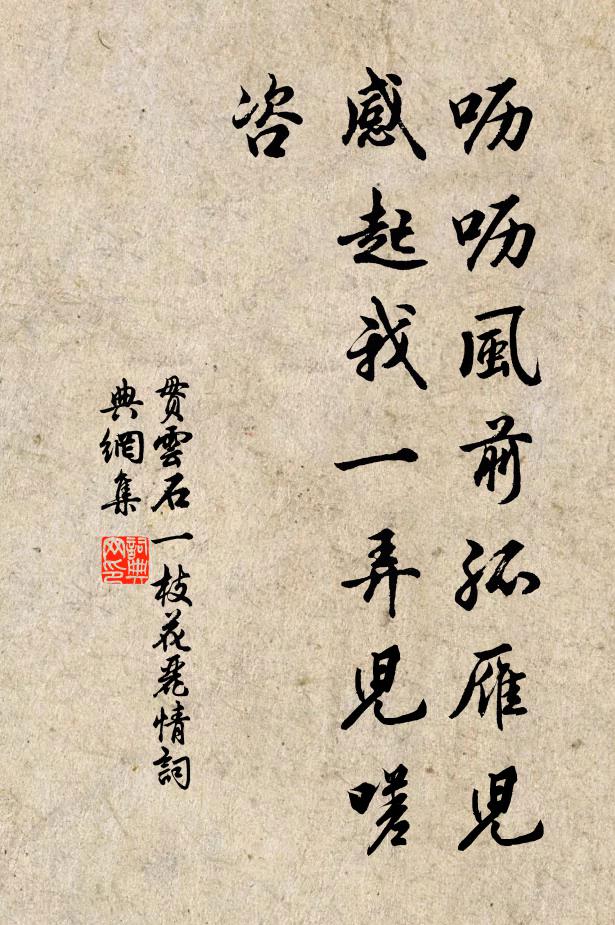 呖呖風前孤雁兒
感起我一弄兒嗟
咨
贯雲石一枝花麗情詞
典網集
詞典
网印